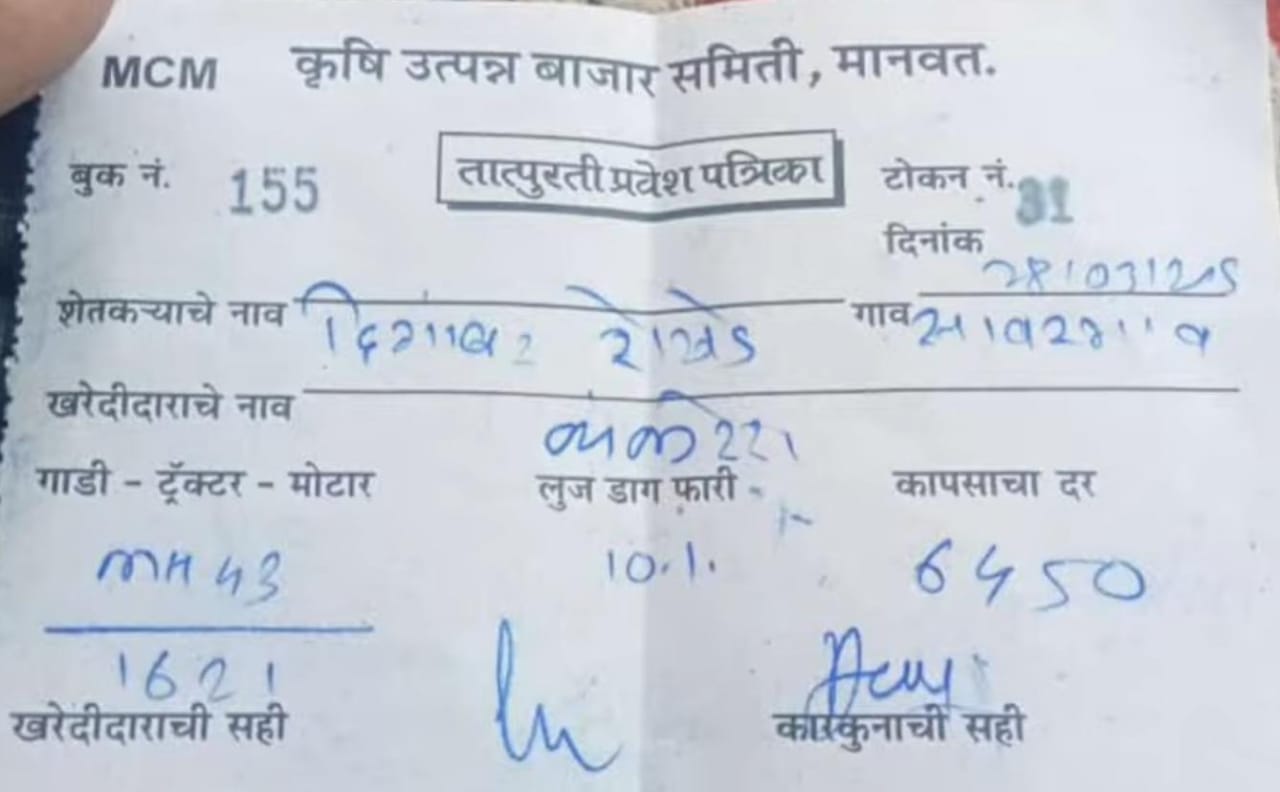 MCM कृषि उत्पन्न बाजार समिती, मानवत.
बुक नं. 155 तात्पुरती प्रवेश पत्रिका टोकन नं. 31
दिनांक 28/03/25
शेतकऱ्याचे नाव दिगांबर गाव
खरेदीदाराचे नाव
गाडी - ट्रॅक्टर - मोटार लुज डाग फारी कापसाचा दर
MH 43 10.1. 6450
1621
खरेदीदाराची सही कारकुनाची सही